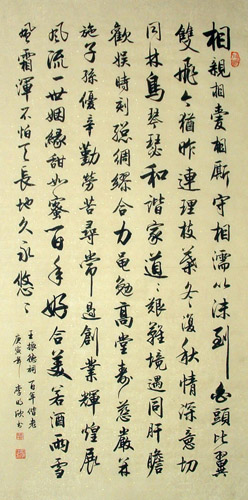 相親相愛相廝守相濡以沫到白頭比翼
雙飛今猶昨連理枝葉冬復秋情深意切
同林鳥琴瑟和諧家道艱難境遇同肝膽
歡娛時刻總綢繆合力黽勉高堂壽慈嚴並
施子孫優辛勤勞苦尋常過創業輝煌展
風流一世姻緣甜如蜜百年好合美若酒雨雪
風霜渾不怕天長地久永悠悠
王振德詞 百年偕老
庚寅年 李 書